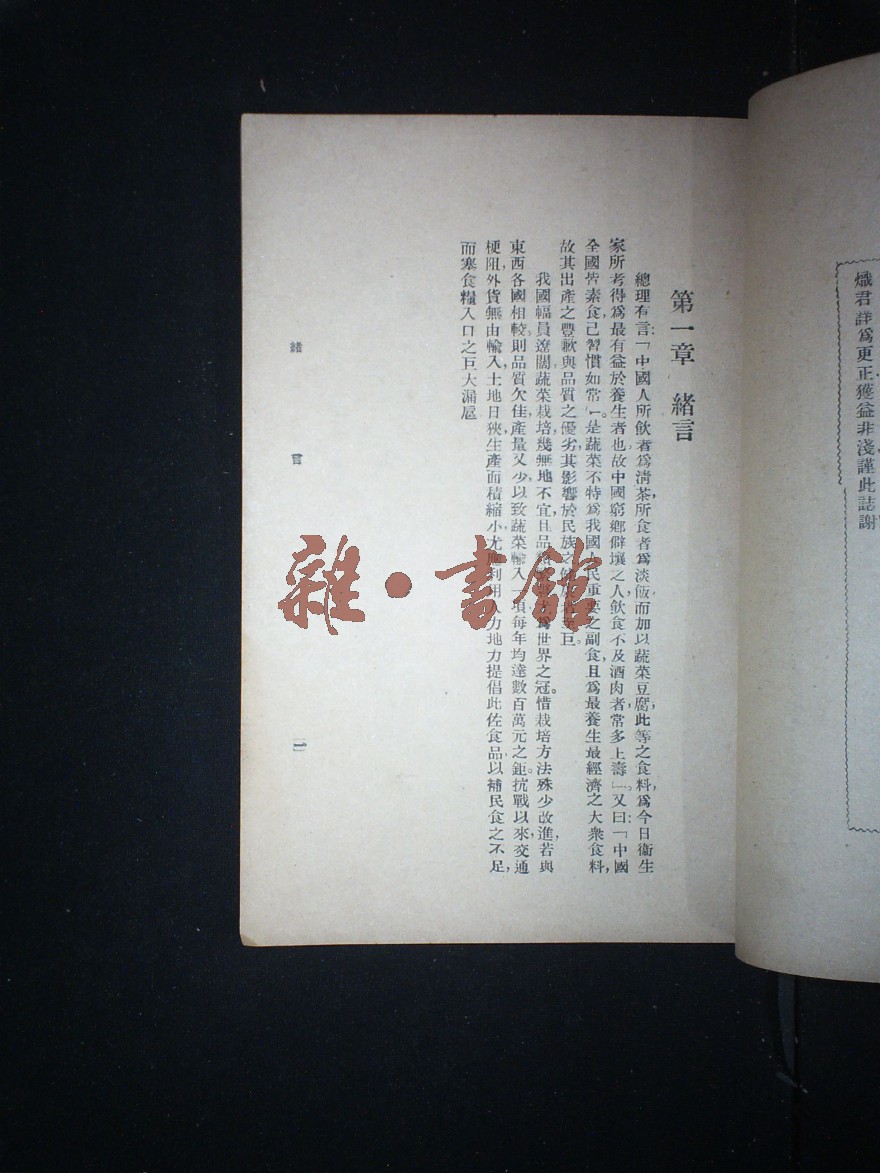 熾君詳爲更正獲益非淺謹此誌謝
第一章 緒言
總理有言:「中國人所飲者爲清茶,所食者爲淡飯,而加以蔬菜豆腐,此等之食料,爲今日衞生
家所考得爲最有益於養生者也故中國窮鄉僻壤之人飲食不及酒肉者常多上壽」。又曰:「中國
全國皆素食,已習慣如常」。是蔬菜不特爲我國人民重要之副食,且爲最養生最經濟之大衆食料,
故其出產之豐歉與品質之優劣,其影響於民族之至巨。
我國幅員遼闊,蔬菜栽培,幾無地不宜,且品爲世界之冠。惜栽培方法,殊少改進,若與
東西各國相較,則品質欠佳,產量又少,以致蔬菜輸入一項,每年均達數百萬元之鉅。抗戰以來,交通
梗阻,外貨無由輸入,土地日狹,生產面積縮小,尤應利用人力地力,提倡此佐食品,以補民食之不足,
而塞食糧入口之巨大漏卮
緒言
一
雜·書館